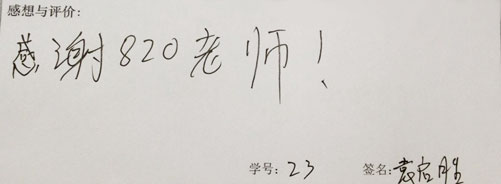 感想与评价:
感谢820老师!
学号: 23 签名: 袁启胜